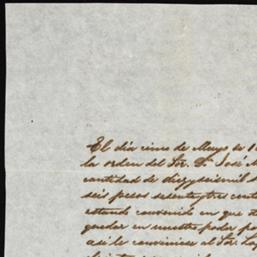 El dia cinco de Mayo de 1
la orden del Sor. D. José M
cantidad de diezyseismil s
seis pesos setentaytres cent
estando convenido en que
quedar en nuestro poder po
asi le convenciese al Sor. Lo